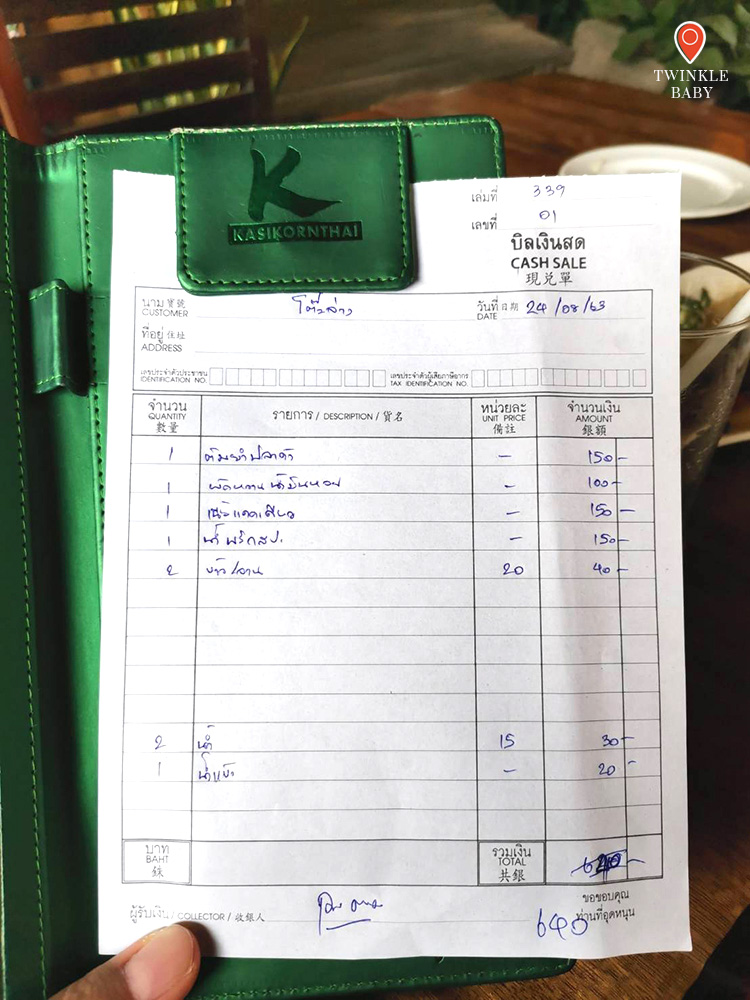 TWINKLE
BABY
K
KASIKORNTHAI
เล่มที่ 339
เลขที่ 01
บิลเงินสด
CASH SALE
現兌單
นาม 寶號 โต๊ะล่าง วันที่ 日期 24/08/63
CUSTOMER DATE
ที่อยู่ 住址
ADDRESS
เลขประจำตัวประชาชน เลขประจำตัวผู้เสียภาษีอากร
IDENTIFICATION NO. TAX IDENTIFICATION NO.
จำนวน รายการ / DESCRIPTION / 貨名 หน่วยละ จำนวนเงิน
QUANTITY UNIT PRICE AMOUNT
數量 備註 銀額
1 ต้มยำปลาคัง - 150 -
1 ผัดหวานน้ำมันหอย - 100 -
1 เนื้อแดดเดียว - 150 -
1 น้ำพริกสป. - 150 -
2 ข้าว/จาน 20 40 -
2 น้ำ 15 30 -
1 น้ำแข็ง - 20 -
บาท รวมเงิน
BAHT TOTAL
銖 共銀
ขอขอบคุณ
ผู้รับเงิน / COLLECTOR / 收銀人 640 ท่านที่อุดหนุน